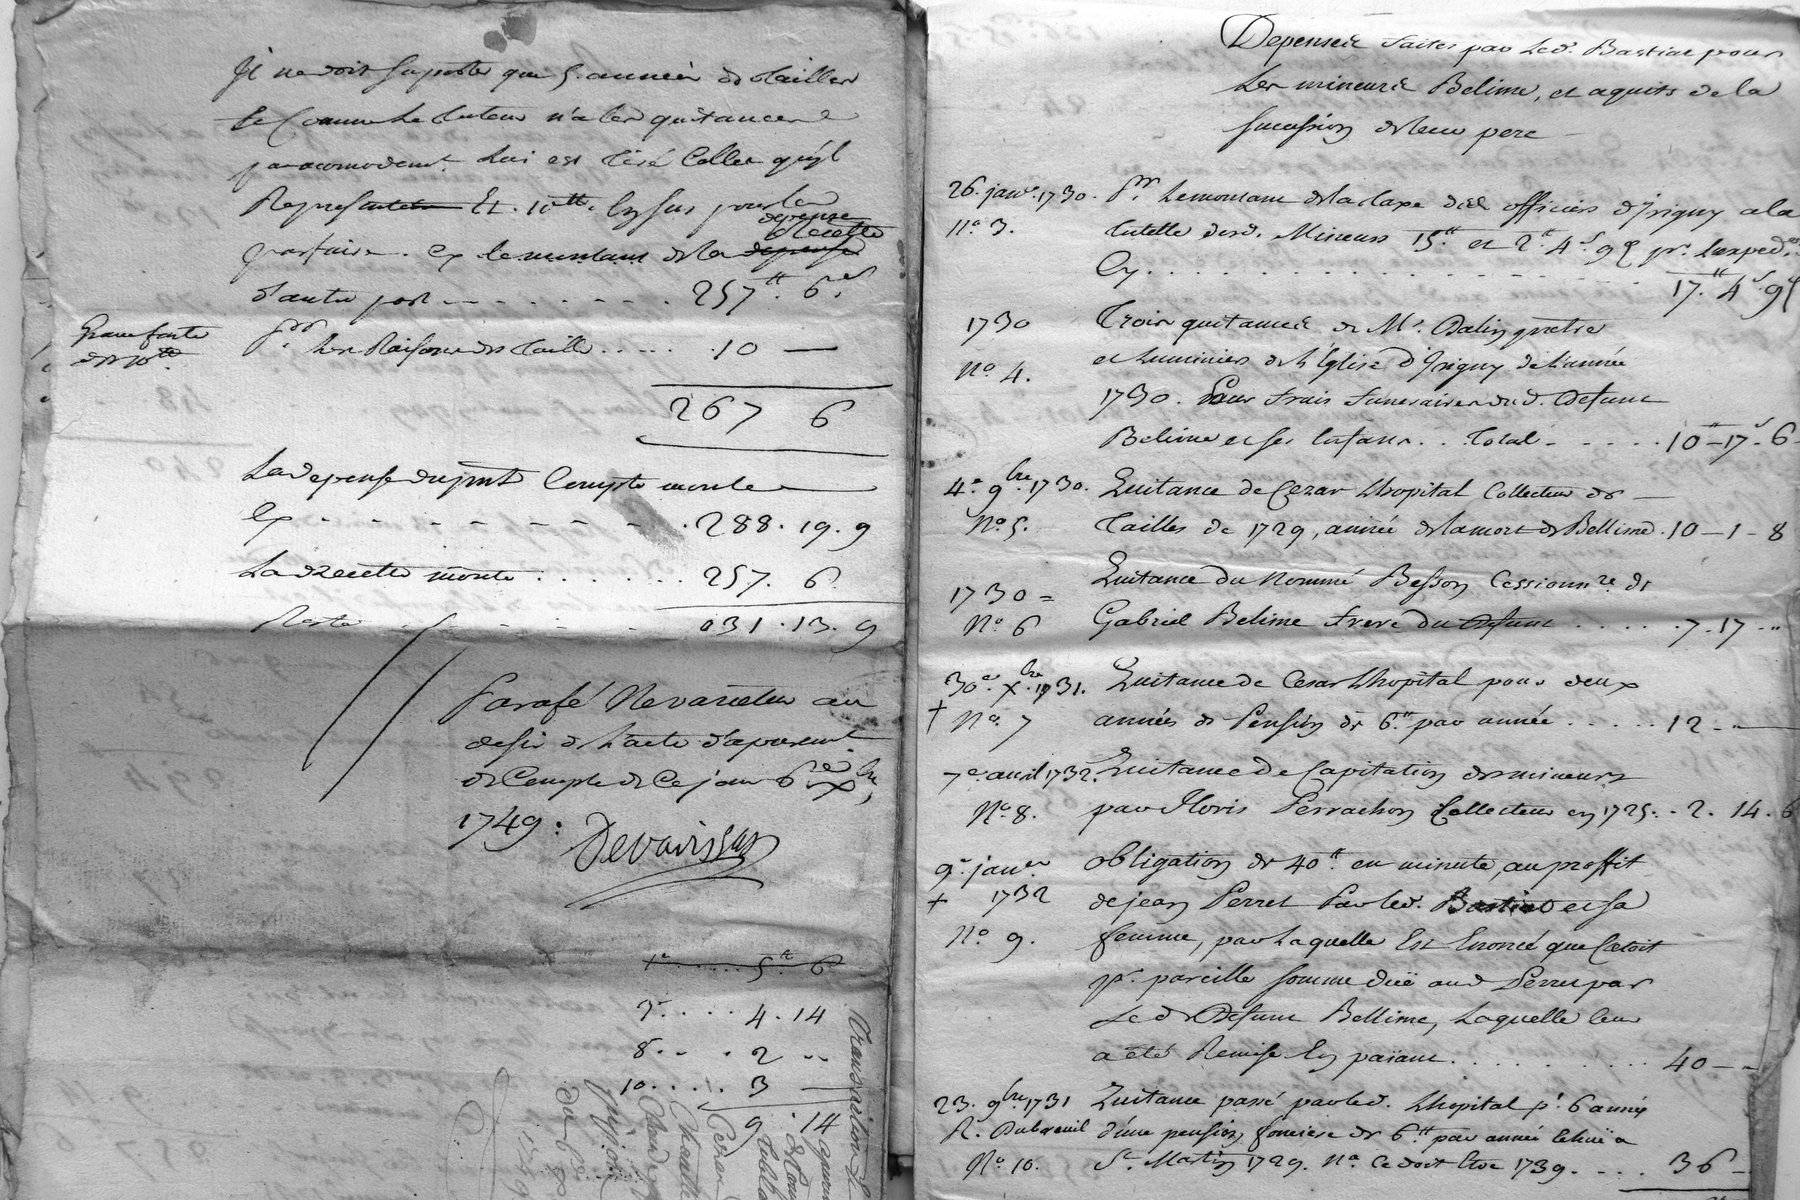 Il ne doit suporter que 5. années de tailles
et Comme le tuteur n'a les quitances
Lui est Celles qu'il
Represente Et. 10tt. en sus pour les
depense
Recette
parfaire. en le montant de la depense
d'autre part - - - - - - - 257tt. 6s
Pr. Les Raisons des taille . . . . . 10 —
267 6
La depense du pnt Compte monte —
En - - - - - - - - . 288. 19. 9
La Recette monte . . . . . . . 257. 6.
Reste - - - - 031. 13. 9
Parafé Nevarietur au
desir de L'acte d'apurement
de Compte de Ce jour 6e xbre
1749:
Devarissan
1e . . . . . 5tt 6
3e. . . . 4. 14
8. . . . 2 ..
10. . . . . 3 —
9. 14
Transaction
Depenses faites par Led. Bastiat pour
Les mineurs Belime, et aquits de la
succession de leur pere
26. janv. 1730. Pr. Le montant de la taxe des officiers d'Irigny a la
No 3. tutelle desd. Mineurs 15tt. et 2tt. 4s 9d pr. Lexped.on
Cy . . . . . . . . . . . . . . . 17tt. 4s 9d
1730 Trois quitances de Mr. Dalin pretre
No 4. et Luminier de L'Eglise d'Irigny de L'année
1730. Pour frais funeraires dud. Defunt
Belime et ses Enfans . . Total - . . . . 10tt - 17s. 6
4e. 9bre. 1730. Quitance de Cezar Lhopital Collecteur des —
No 5. Tailles de 1729, année de la mort de Bellime. 10 - 1 - 8
Quitance du Nommé Besson Cessionnre. de
1730 =
No 6 Gabriel Belime frere du Defunt . . . . . 7. 17 - "
30e. Xbre 1731. Quitance de Cesar Lhopital pour deux
+ No. 7 années de Pension de 6tt. par année . . . . . 12 - "
7e avril 1732. Quitance de Capitation des mineurs
No 8. par Floris Perrachon Collecteur en 1725. . 2. 14. 6
9e janer obligation de 40tt. en minute, au proffit
+ 1732 de jean Perret Par led. Bastiat et sa
No 9. femme, par Laquelle Est Enoncé que C'etoit
pr. pareille somme düe aud Perret par
Led. Defunt Bellime, Laquelle leur
a été Remise En païant . . . . . . . . . 40 - "
23. 9bre 1731 Quitance passé par led. Lhopital pr. 6 années
R. Dubreuil d'une pension fonciere de 6tt. par année Echuë a
No 10. St. Martin 1729. Na. Ce doit Etre 1739. . . . 36 -